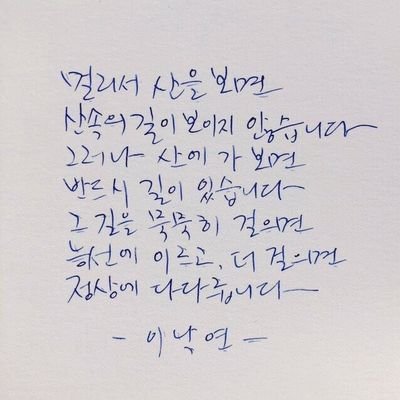 멀리서 산을 보면
산속의 길이 보이지 않습니다
그러나 산에 가 보면
반드시 길이 있습니다
그 길을 묵묵히 걸으면
능선에 이르고, 더 걸으면
정상에 다다릅니다
- 이낙연 -